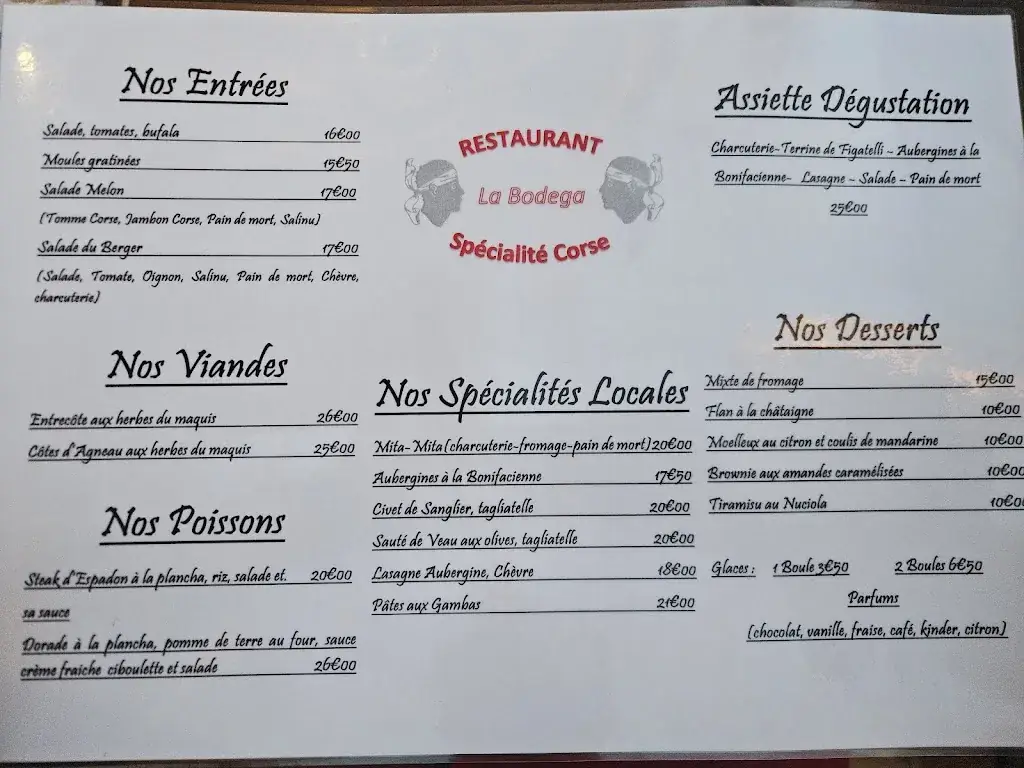 Nos Entrées
Salade, tomates, bufala 16€00
Moules gratinées 15€50
Salade Melon 17€00
(Tomme Corse, Jambon Corse, Pain de mort, Salinu)
Salade du Berger 17€00
(Salade, Tomate, Oignon, Salinu, Pain de mort, Chèvre,
charcuterie)
Nos Viandes
Entrecôte aux herbes du maquis 26€00
Côtes d'Agneau aux herbes du maquis 25€00
Nos Poissons
Steak d'Espadon à la plancha, riz, salade et. 20€00
sa sauce
Dorade à la plancha, pomme de terre au four, sauce
crème fraiche ciboulette et salade 26€00
RESTAURANT
La Bodega
Spécialité Corse
Nos Spécialités Locales
Mita-Mita(charcuterie-fromage-pain de mort)20€00
Aubergines à la Bonifacienne 17€50
Civet de Sanglier, tagliatelle 20€00
Sauté de Veau aux olives, tagliatelle 20€00
Lasagne Aubergine, Chèvre 18€00
Pâtes aux Gambas 21€00
Assiette Dégustation
Charcuterie-Terrine de Figatelli - Aubergines à la
Bonifacienne- Lasagne - Salade - Pain de mort
25€00
Nos Desserts
Mixte de fromage 15€00
Flan à la châtaigne 10€00
Moelleux au citron et coulis de mandarine 10€00
Brownie aux amandes caramélisées 10€00
Tiramisu au Nuciola 10€00
Glaces : 1 Boule 3€50 2 Boules 6€50
Parfums
(chocolat, vanille, fraise, café, kinder, citron)